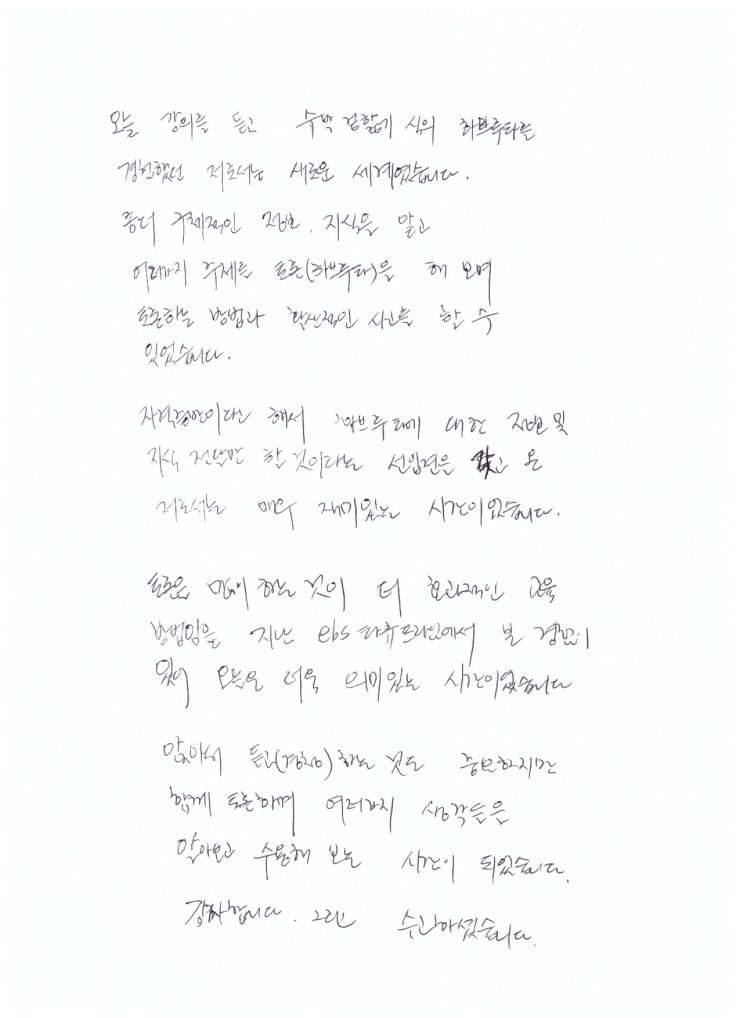 오늘 강의를 듣고 수박 겉핥기 식의 하브루타를
경험했던 저로서는 새로운 세계였습니다.
좀더 구체적인 정보, 지식을 알고
여러가지 주제를 토론(하브루타)을 해 보며
토론하는 방법과 확산적인 사고를 할 수
있었습니다.
해서 하브루타에 대한 정보 및
지식 전달만 할 것이라는 선입견을 갖고 온
저로서는 매우 재미있는 시간이었습니다.
토론을 많이 하는 것이 더 효과적인 교육
방법임을 지난 ebs 다큐프라임에서 본 경험이
있어 오늘은 더욱 의미있는 시간이었습니다
앉아서 듣고(경청)하는 것도 중요하지만
함께 토론하며 여러가지 생각들을
알아보고 수용해 보는 시간이 되었습니다.
감사합니다. 그리고 수고하셨습니다.